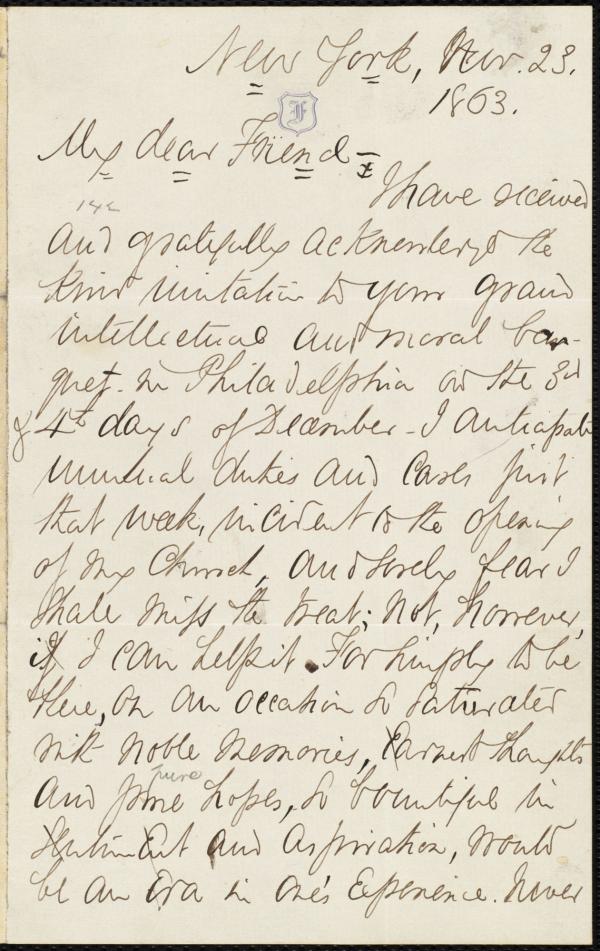 New York, Nov. 23.
1863.
F
My dear Friend -
I have received
and gratefully acknowledged the
kind invitation to your grand
intellectual and moral ban-
quet in Philadelphia on the 3d
& 4th days of December - I anticipate
unusual duties and cares just
that week, incident to the opening
of my Church, and sorely fear I
shall miss the treat; not, however,
if I can help it. For simply to be
there, on an occasion so saturated
with noble memories, earnest thoughts
pure
and pure hopes, so bountiful in
sentiment and aspiration, would
be an era in one's experience. Never